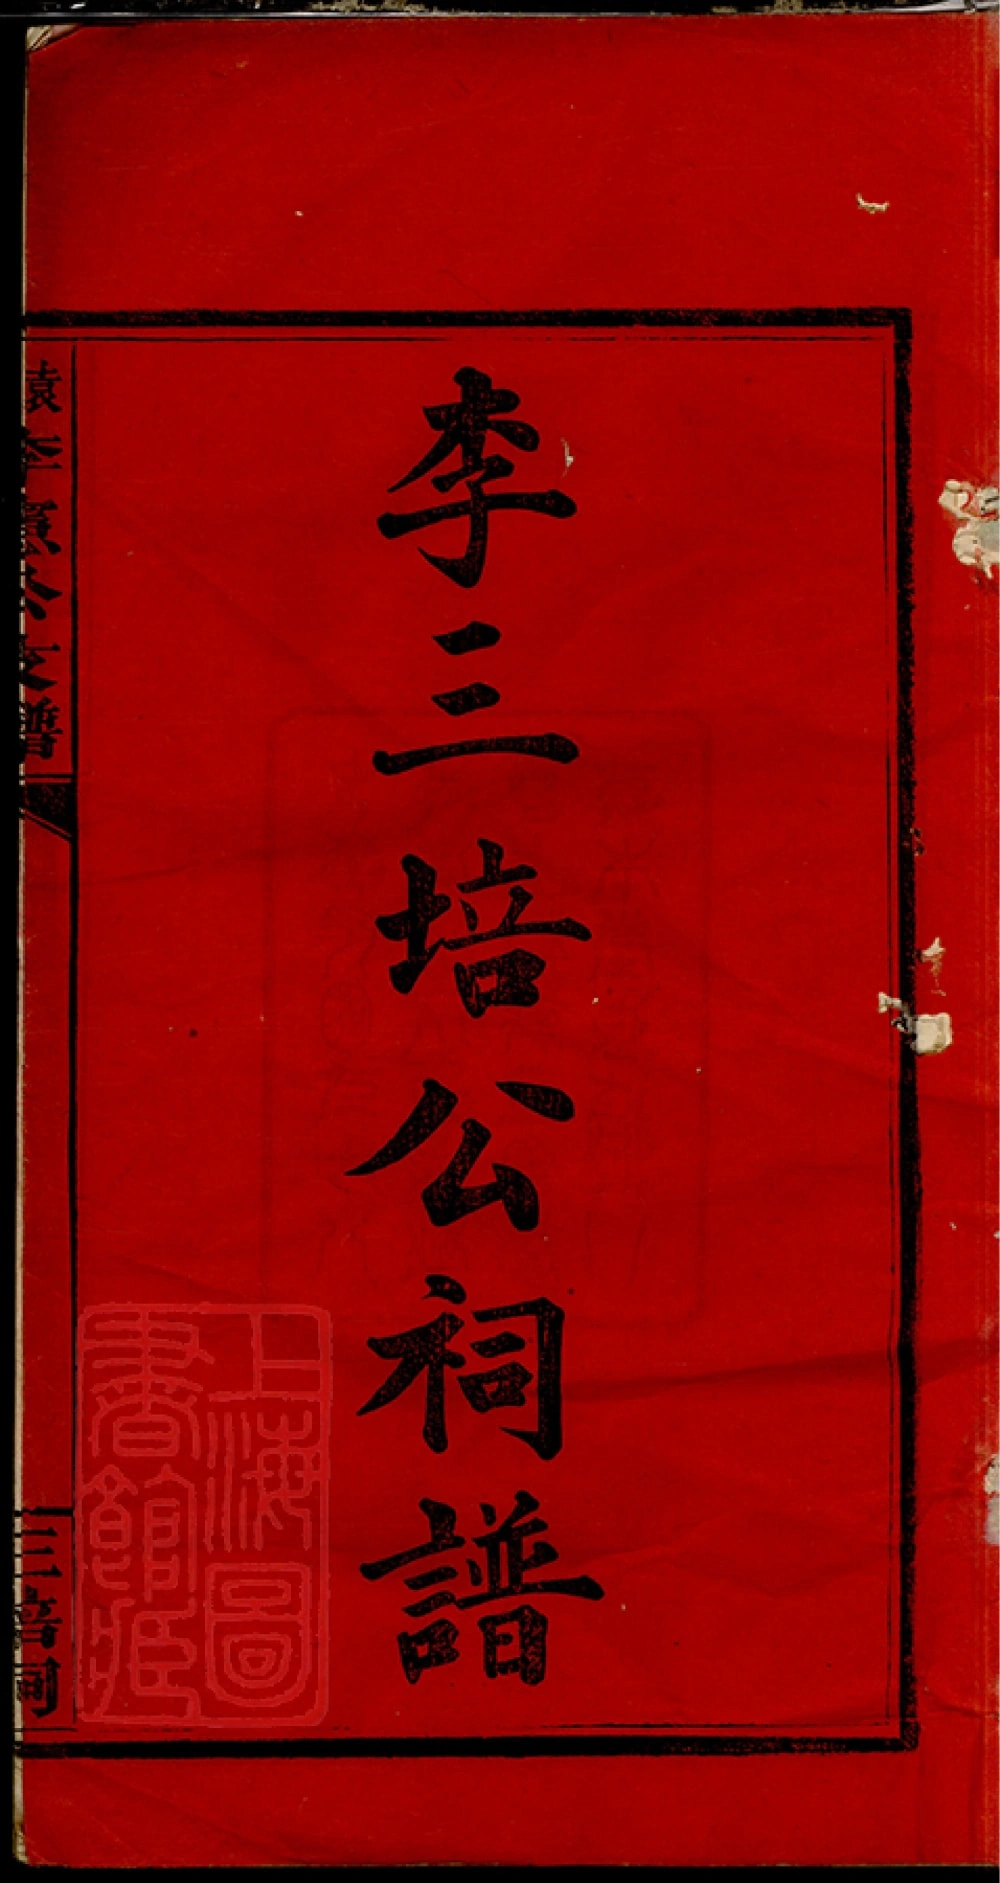 李三培公祠譜
袁 公 譜
三培祠
上海圖
書館藏